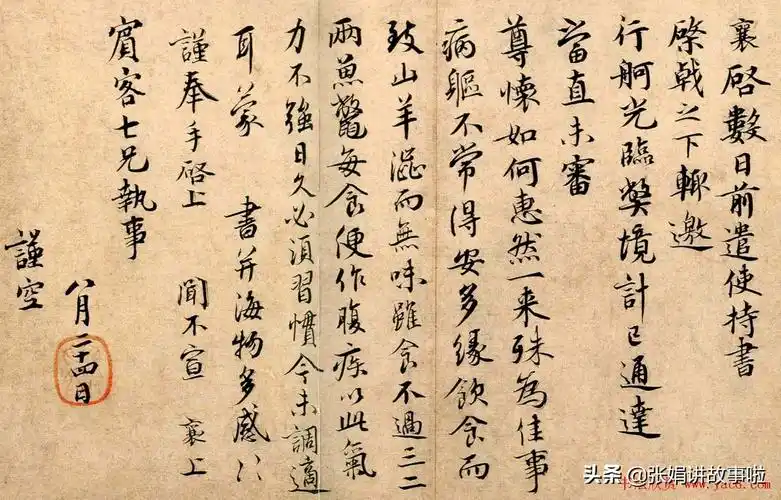 襄啓數日前遣使持書
棨戟之下輒邀
行舸光臨弊境計已通達
當直未審
尊懷如何惠然一来殊為佳事
病軀不常得安多緣飲食而
致山羊澀而無味雖食不過三二
兩魚鼈每食便作腹疾以此氣
力不強日久必須習慣今未調適
耳蒙 書并海物多感〻
謹奉手啓上 聞不宣 襄上
賓客七兄執事
八月二十四日
謹空
头条 @张娟讲故事啦